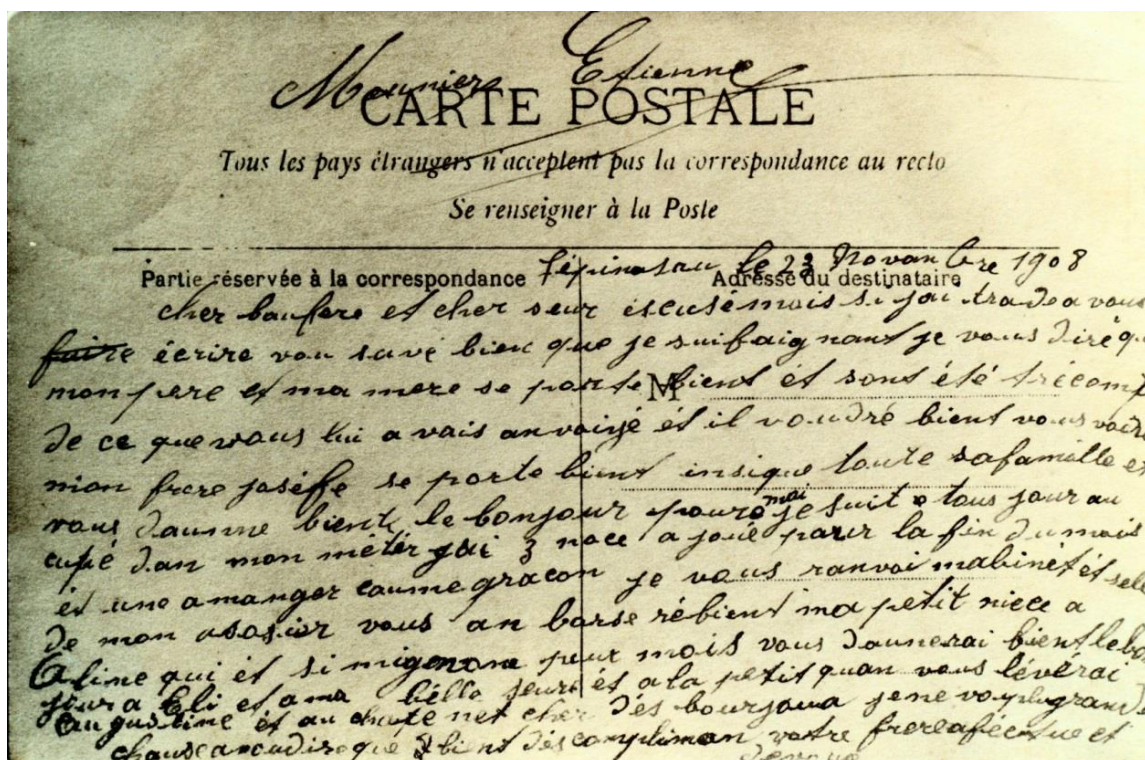 Meunier Etienne
CARTE POSTALE
Tous les pays étrangers n'acceptent pas la correspondance au recto
Se renseigner à la Poste
Partie réservée à la correspondance
Adresse du destinataire
le 23 Novanbre 1908
cher baufere et cher seur escusé mois si jai trade a vous
faire écrire vou savé bien que je suifaignant je vous diré qu
mon pere et ma mere se porte bient et sont été trécomp
M
de ce que vous lui a vais anvoiyé ét il voudré bient vous voir
mion frere joséffe se porte bient insique toute safamille et
vous daunne bient le bonjour pour mai je suit tous jour au
cupé dan mon métér jai 3 noce a joué parir la fin du mois
ét une a manger caume gracon je vous ranvoi mabinét ét
de mon asosier vous an barse rébient ma petit niece a
Oline qui ét si migenone pour mois vous daunerai bient lebo
jour a Eli et a ma bélle seur et a la petit quan vous lévérai
Augustine et au net cher dés bourjoua jene vo plugrand
chause ancadire que bient dés compliman votre frereaféctue et